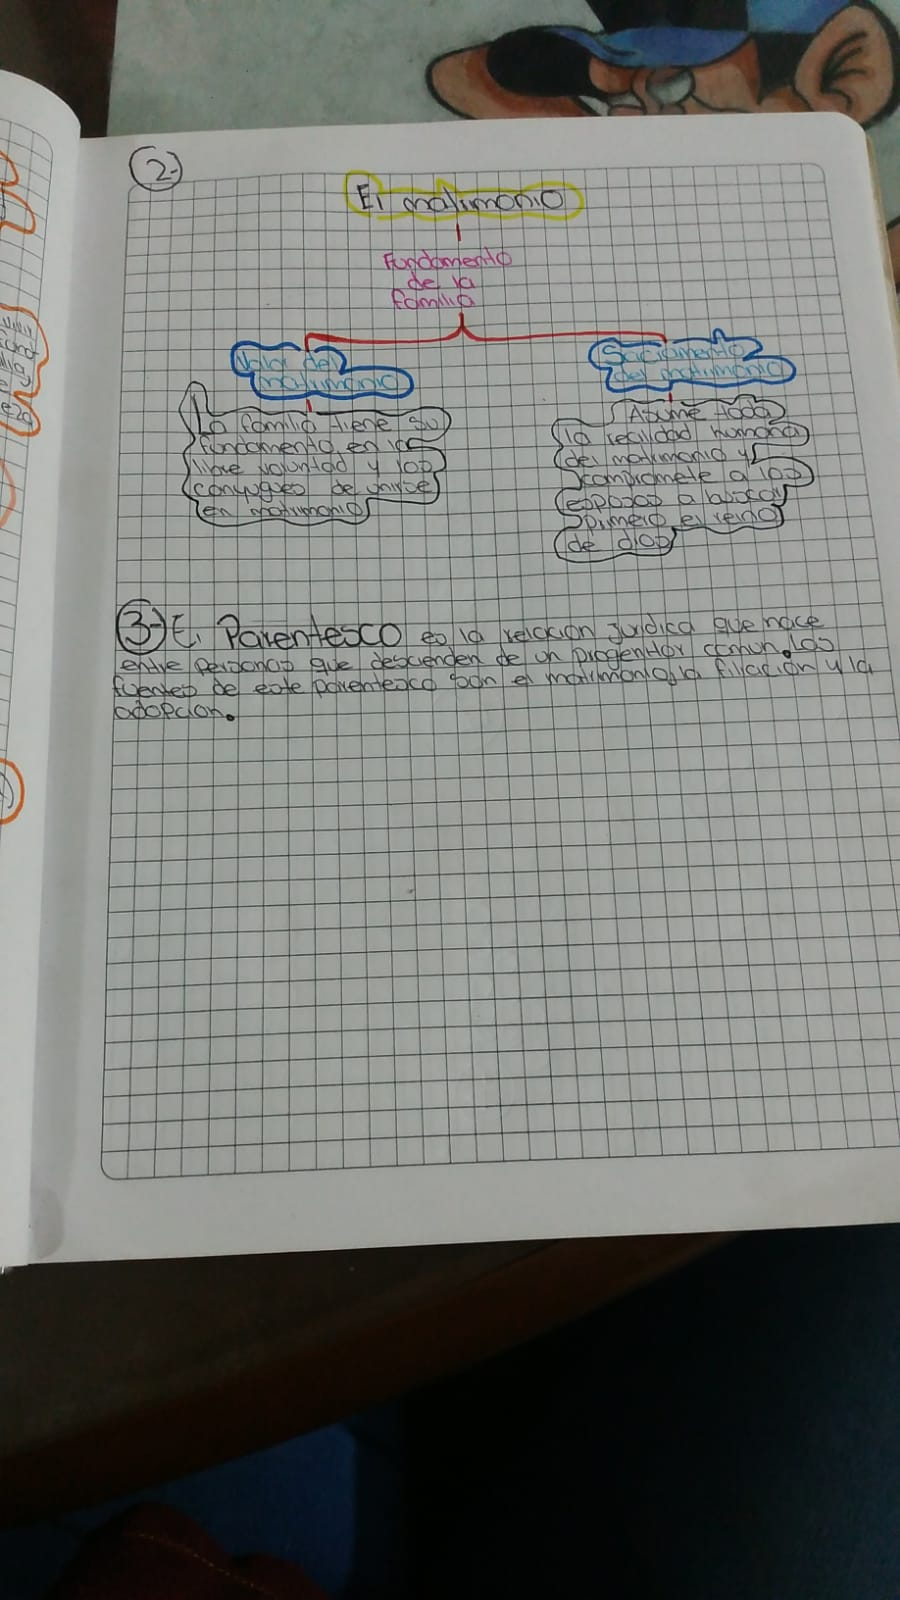 2-)
El matrimonio
Fundamento
de la
familia
Valor del
matrimonio
La familia tiene su
fundamento en la
libre voluntad y los
conyugues de unirse
en matrimonio
Sacramento
del matrimonio
Asume toda
la realidad humana
del matrimonio y
compromete a los
esposos a buscar
primero el reino
de dios
3-) El Parentesco es la relación jurídica que nace
entre personas que descienden de un progenitor comun. Las
fuentes de este parentesco son el matrimonio, la filiación y la
adopcion.